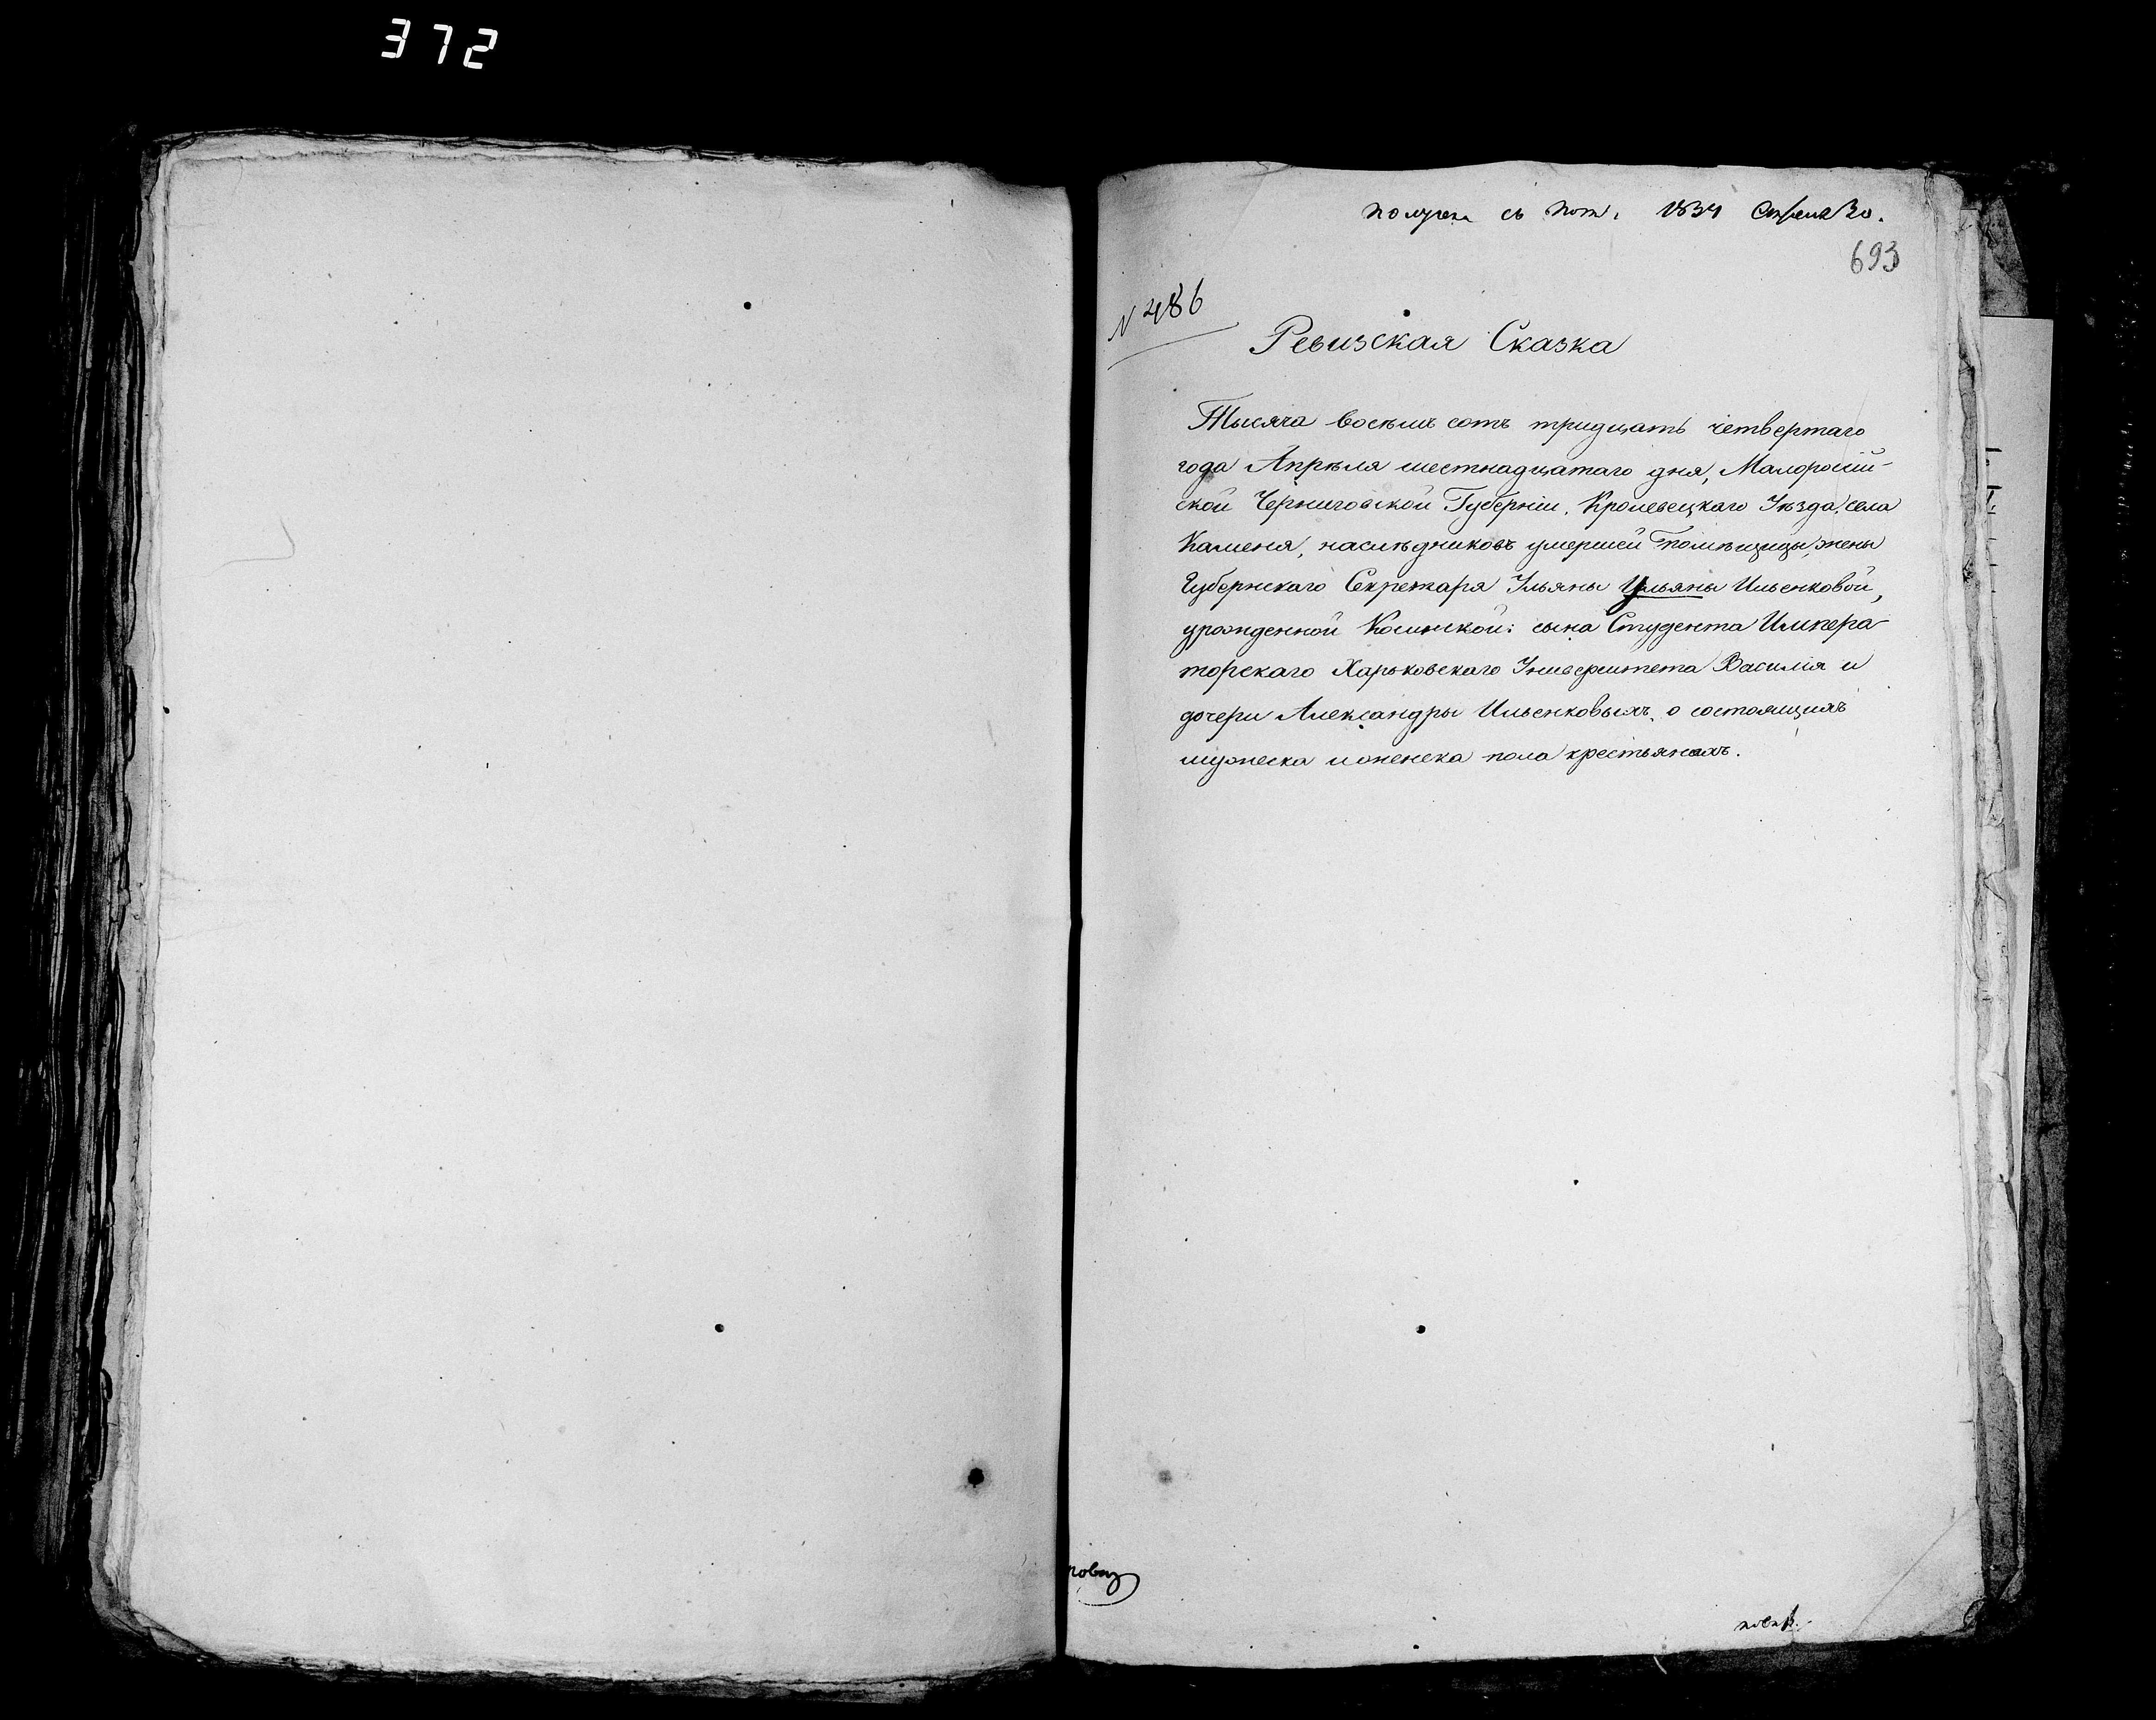 372
получена съ поч. 1834 Апреля 30.
693
N 486
Ревизская Сказка
Тысяча восемь сотъ тридцать четвертаго
года Апрѣля шестнадцатаго дня, Малоросій-
ской Черниговской Губерніи, Кролевецкаго Уѣзда, села
Каменя, наслѣдниковъ умершей Помѣщицы, жены
Губернскаго Секретаря Ульяны Ульяны Ильенковой,
урожденной сына Студента Импера-
торскаго Харьковскаго Университета Василія и
дочери Александры Ильенковыхъ, о состоящихъ
мужеска и женска пола крестьянахъ.